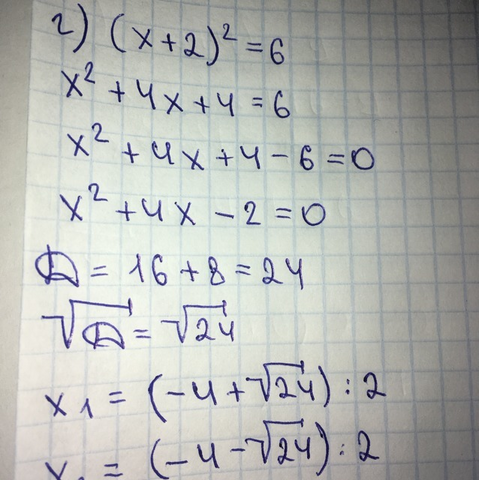 г) (x+2)² = 6
x² + 4x + 4 = 6
x² + 4x + 4 - 6 = 0
x² + 4x - 2 = 0
D = 16 + 8 = 24
√D = √24
x1 = (-4 + √24) : 2
= (-4 - √24) : 2